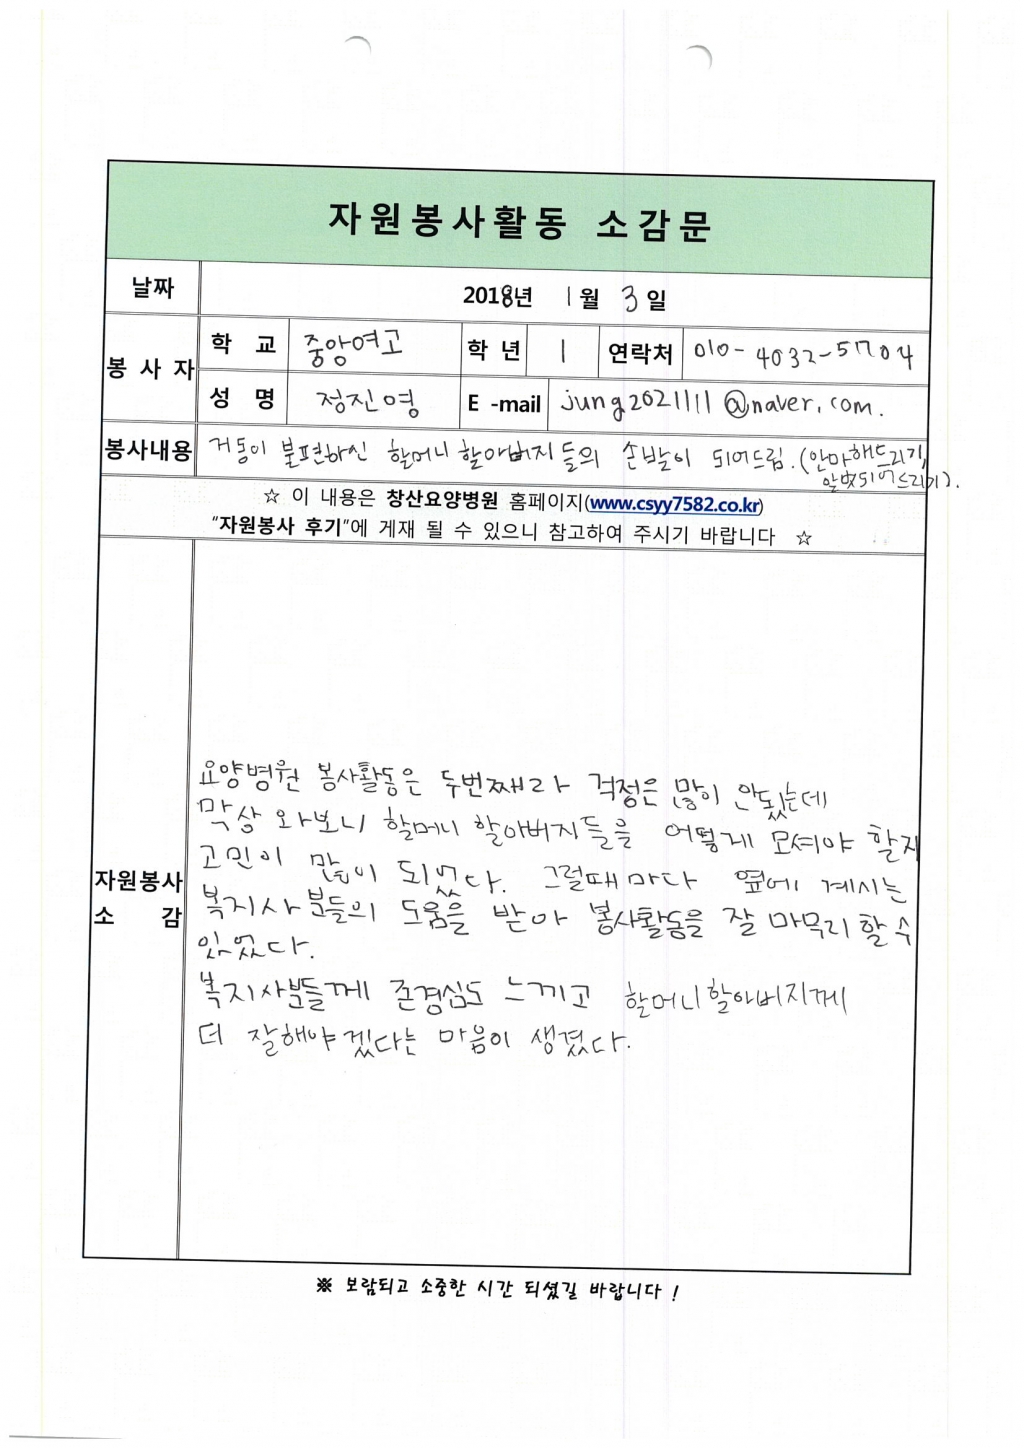 자원봉사활동 소감문
날짜 2018년 1월 3일
봉사자 학교 중앙여고 학년 1 연락처 010-4032-5704
성명 정진영 E-mail jung2021111@naver.com.
봉사내용 거동이 불편하신 할머니 할아버지들의 손발이 되어드림. (안마해드리기,
말벗되어드리기).
☆ 이 내용은 창산요양병원 홈페이지(www.csyy7582.co.kr)
"자원봉사 후기"에 게재 될 수 있으니 참고하여 주시기 바랍니다 ☆
자원봉사
소감
요양병원 봉사활동은 두번째라 걱정은 많이 안됬는데
막상 와보니 할머니 할아버지들을 어떻게 모셔야 할지
고민이 많이 되었다. 그럴때마다 옆에 계시는
복지사분들의 도움을 받아 봉사활동을 잘 마무리 할 수
있었다.
복지사분들께 존경심도 느끼고 할머니할아버지께
더 잘해야겠다는 마음이 생겼다.
※ 보람되고 소중한 시간 되셨길 바랍니다 !